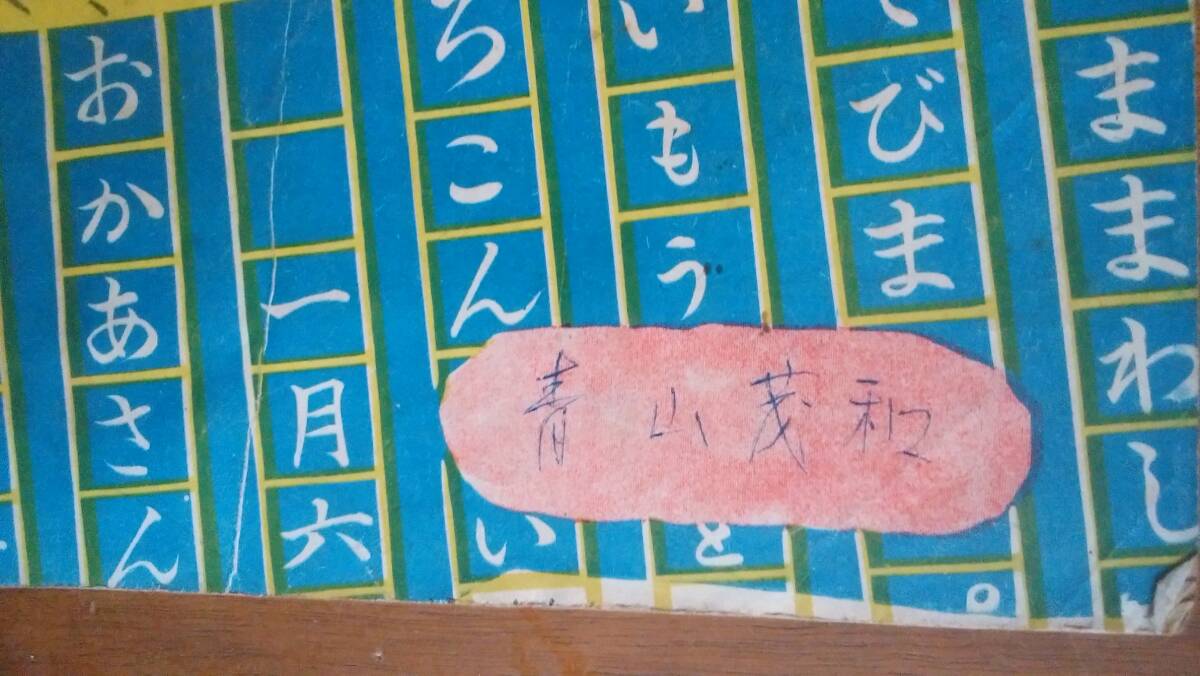 ままわし
びま
。
いもう
と
ろこん
い
一月六
おかあさん
青山茂和